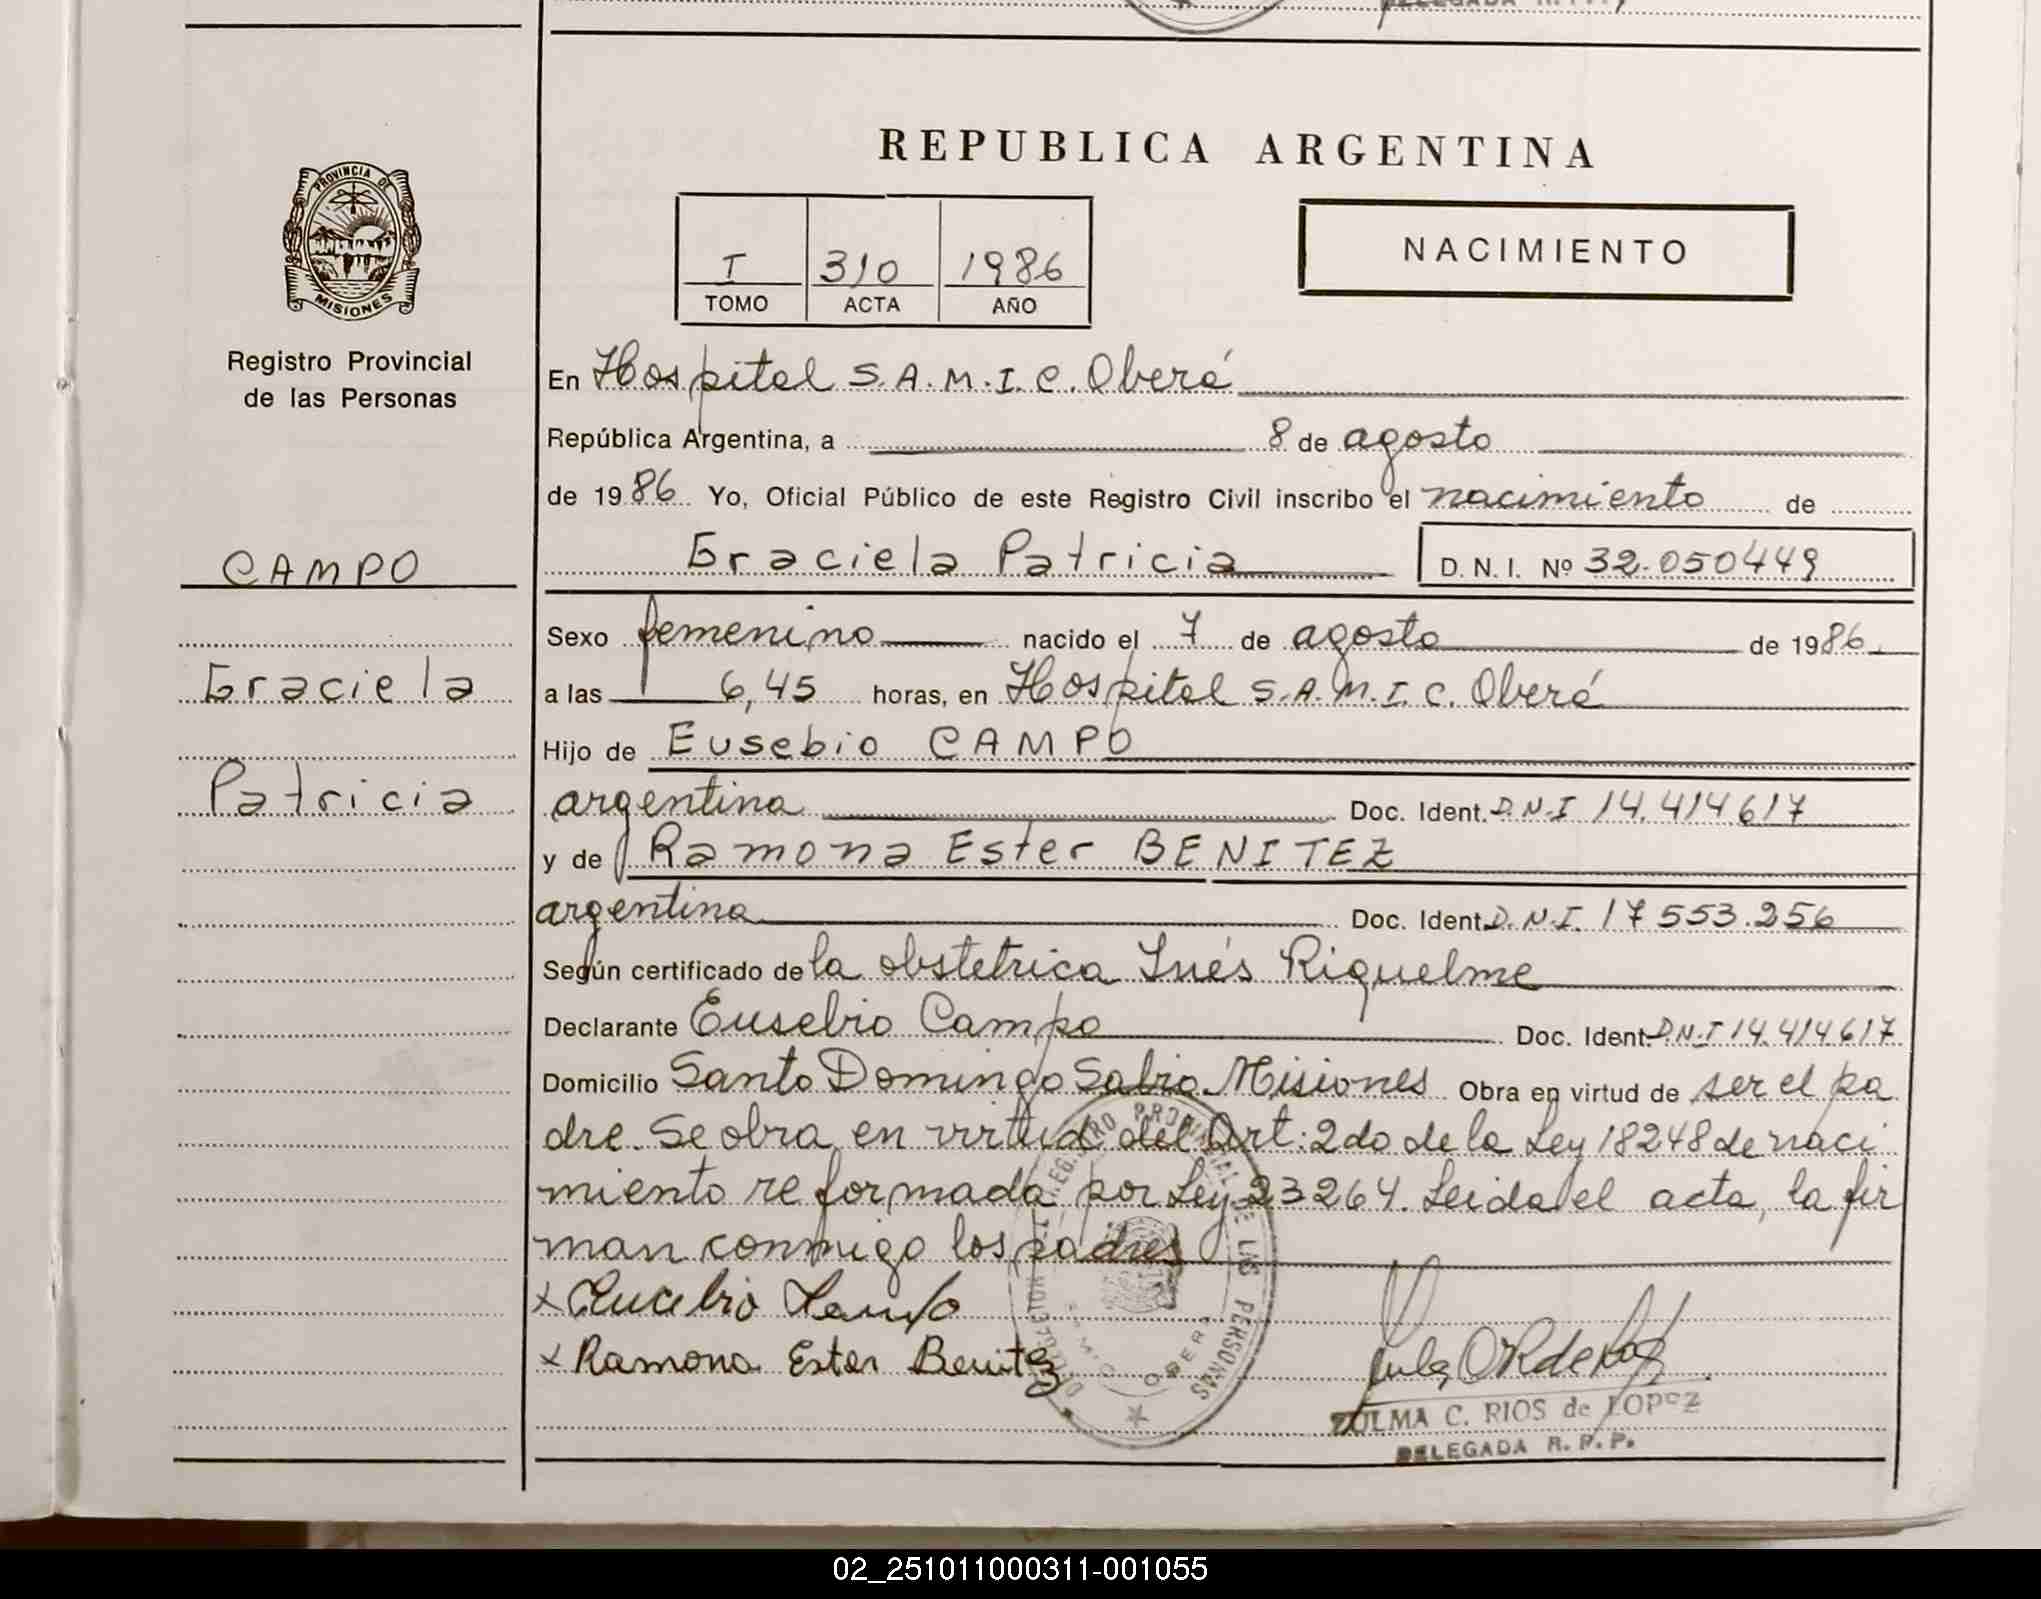 REPUBLICA ARGENTINA
PROVINCIA DE
MISIONES
Registro Provincial
de las Personas
I 310 1986
TOMO ACTA AÑO
NACIMIENTO
En Hospital S.A.M.I.C. Oberá
República Argentina, a 8 de agosto
de 1986. Yo, Oficial Público de este Registro Civil inscribo el nacimiento de
Graciela Patricia D.N.I. Nº 32.050449
CAMPO
Graciela
Patricia
Sexo femenino nacido el 7 de agosto de 1986.
a las 6,45 horas, en Hospital S.A.M.I.C. Oberá
Hijo de Eusebio CAMPO
argentina Doc. Ident. D.N.I 14.414.617
y de Ramona Ester BENITEZ
argentina Doc. Ident. D.N.I. 17 553.256
Según certificado de la obstetrica Inés Riquelme
Declarante Eusebio Campo Doc. Ident. D.N.I 14.414.617
Domicilio Santo Domingo Sabio. Misiones Obra en virtud de ser el pa
dre. Se obra en virtud del Art: 2do de la Ley 18248 de naci
miento reformada por Ley 23264. Leida el acta, la fir
man conmigo los padres
x Eucebio Campo
x Ramona Ester Benitez
REGISTRO PROVINCIAL DE LAS PERSONAS
OBERA
ZULMA C. RIOS de LOPEZ
DELEGADA R.P.P.
02_251011000311-001055